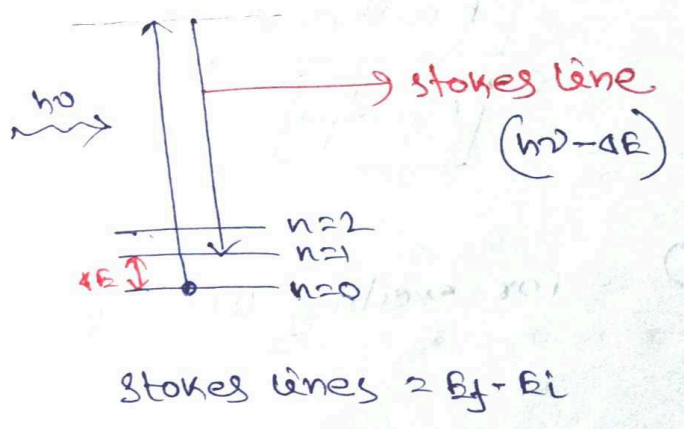 hν
stokes line
(hν-ΔE)
n=2
n=1
ΔE
n=0
stokes lines = Ef - Ei